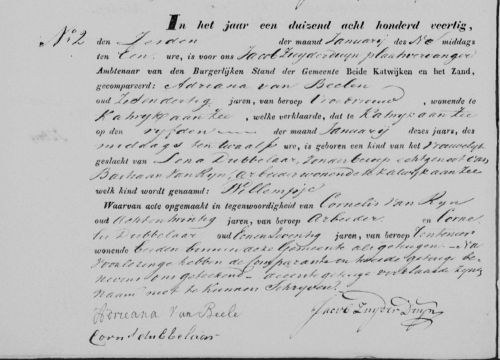 In het jaar een duizend acht honderd veertig,
No 2 den Zesden der maand Januarij des Na middags
ten Een ure, is voor ons Jacob Zuyderduyn plaatsvervanger
Ambtenaar van den Burgerlijken Stand der Gemeente Beide Katwijken en het Zand,
gecompareerd: Adriana van Beelen
oud Zesendertig jaren, van beroep Vroedvrouw, wonende te
Katwijk aan Zee, welke verklaarde, dat te Katwijk aan Zee
op den vyfden der maand Januarij dezes jaars, des
middags ten twaalf ure, is geboren een kind van het Vrouwelyk
geslacht van Lena Dubbelaar, Zonder beroep echtgenoot van
Bastiaan van Ryn, Arbeider wonende te Katwijk aan Zee
welk kind wordt genaamd: Willempje
Waarvan acte opgemaakt in tegenwoordigheid van Cornelis van Ryn
oud jaren, van beroep Arbeider en Corne
lis Dubbelaar oud Eenenzeventig jaren, van beroep
wonende beiden binnen deze Gemeente als getuigen. Na
Voorlezinge hebben de Comparante en tweede getuige be
nevens ons geteekend, getuige verklaarde zyn
Naam niet te kunnen Schryven.
Adriana Van Beele
Jacob Zuyder Duyn
Corns dubbelaar